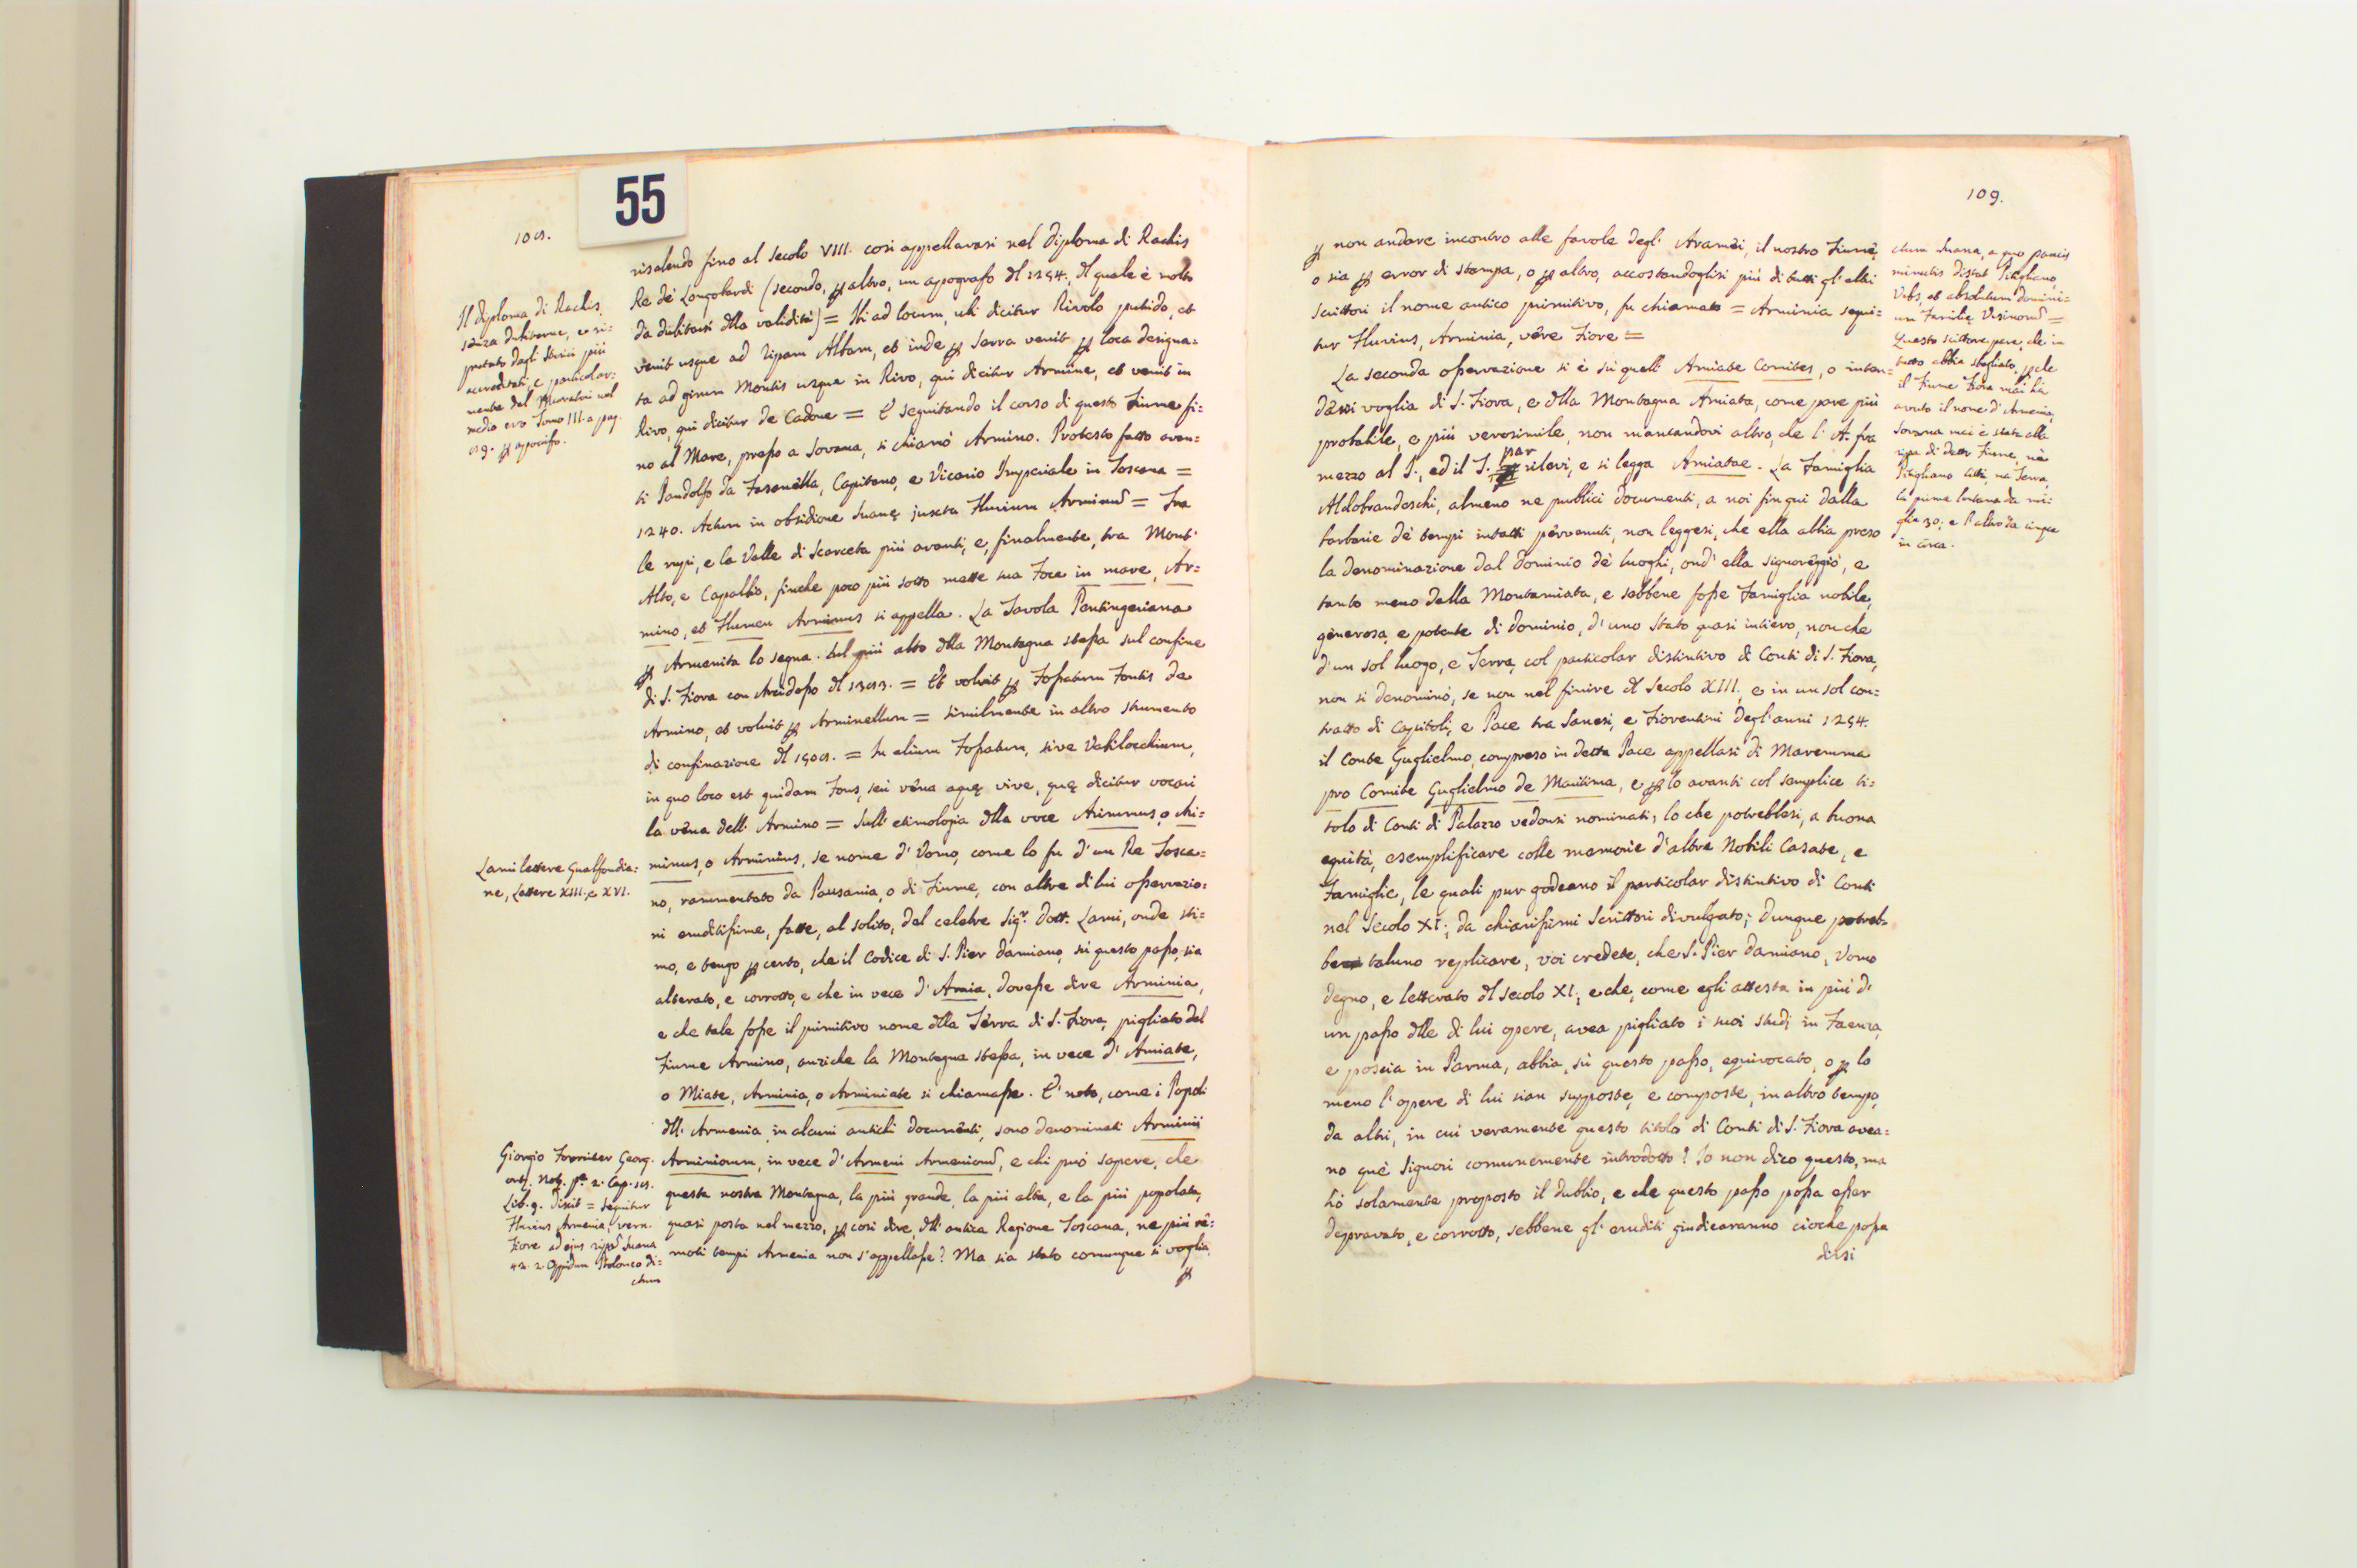 55
108.
risalendo fino al Secolo VIII. così appellavasi nel Diploma di Rachis
Re dè Longobardi (secondo, ꝑ altro, un apografo dl 1254. Il quale è molto
da dubitarsi dlla validità) = Iti ad locum, ubi dicitur Rivolo putido, et
venit usque ad ripam Albam, et inde ꝑ Serra venit ꝑ loca designa=
ta ad girum Montis usque in Rivo, qui dicitur Armine, et venit in
Rivo, qui dicitur de Cadone = E seguitando il corso di questo Fiume fi=
no al Mare, presso a Sovana, si chiamò Armino. Protesto fatto avan=
ti Pandolfo da Fasanella, Capitano, e Vicario Imperiale in Toscana =
1240. Actum in obsidione Suanę juxta Fluvium Arminum = Fra
le rupi, e la Valle di Scarceta più avanti, e, finalmente, tra Mont'
Alto, e Capalbio, finche poco più sotto mette sua Foce in mare, Ar=
mino, et Flumen Arminus si appella. La Tavola Peutingeriana
ꝑ Armenita lo segna. Sul più alto dlla Montagna stessa sul confine
di S. Fiora con Arcidosso dl 1383. = Et volvit ꝑ Fossatum Fontis de
Armino, et volvit ꝑ Arminellum = similmente in altro strumento
di confinazione dl 1508. = In alium Fossatum, sive Vahilocchium,
in quo loco est quidam Fons, seu vêna aquę vivę, quę dicitur vocari
la vêna dell' Armino = Sull' etimologia dlla voce Arimnus, o Ari=
minus, o Arminius, se nome d' Vomo, come lo fu d' un Re Tosca=
no, rammentato da Pausania, o di Fiume, con altre di lui osservazio=
ni eruditissime, fatte, al solito, dal celebre Sigr. Dott. Lami, onde sti=
mo, e tengo ꝑ certo, che il Codice di S. Pier Damiano, sù questo passo, sia
alterato, e corrotto, e che in vece d' Amia, dovesse dire Arminia,
e che tale fosse il primitivo nome dlla Terra di S. Fiora, pigliato dal
Fiume Armino, anziche la Montagna stessa, in vece d' Amiate,
o Miate, Arminia, o Arminiate si chiamasse. E' noto, come i Popoli
dll' Armenia, in alcuni antichi documenti, sono denominati Arminii
Arminiorum, in vece d' Armeni Armeniorum, e chi può sapere, che
questa nostra Montagna, la più grande, la più alta, e la più popolata,
quasi posta nel mezzo, ꝑ così dire, dll' antica Regione Toscana, ne più rê=
moti tempi Armenia non s' appellasse? Ma sia stato comunque si voglia,
ꝑ
Il diploma di Rachis,
senza dubitarne, è ri=
putato dagli Storici più
accreditati, e particolar=
mente dal Muratori nel
medio evo Tomo III. a pag.
89. ꝑ apocrifo.
Lami lettere Gualfondia=
ne, Lettere XIII, e XVI.
Giorgio Fournier Georg.
orb. Not. pe. 2. Cap. 18.
Lib. 9. dixit = Sequitur
Fluvius Armenia, vern.
Fiore ad ejus ripam Suana
42. 2. Oppidum Ptolomeo di=
ctum
109.
ꝑ non andare incontro alle favole degl' Aramêi, il nostro Fiume,
o sia ꝑ error di stampa, o ꝑ altro, accostandoglisi più di tutti gl' altri
Scrittori il nome antico primitivo, fu chiamato = Arminia sequi=
tur Fluvius, Arminia, vêre Fiore =
La seconda osservazione si è sù quelli Amiate Comites, o inten=
dassi voglia di S. Fiora, e dlla Montagna Amiata, come pare più
probabile, e più verosimile, non mancandovi altro, che l' A. fra
mezzo al T., ed il S. par rilevi, e si legga Amiatae. La Famiglia
Aldobrandeschi, almeno ne pubblici documenti, a noi fin qui dalla
barbarie dè tempi intatti pêrvenuti, non leggesi, che ella abbia preso
la denominazione dal Dominio dè luoghi, ond' ella signoreggiò, e
tanto meno dalla Montamiata, e sebbene fosse Famiglia nobile,
gênerosa, e potente di Dominio, d' uno Stato quasi intiero, nonche
d' un sol luogo, e Terra, col particolar distintivo di Conti di S. Fiora,
non si denominò, se non nel finire dl Secolo XIII., e in un sol con=
tratto di Capitoli, e Pace tra Sanesi, e Fiorentini degl' anni 1254.
il Conte Guglielmo, compreso in detta Pace appellasi di Maremma
pro Comite Guglielmo de Maritima, e ꝑ lo avanti col semplice ti=
tolo di Conti di Palazzo vedonsi nominati, lo che potrebbesi, a buona
equità, esemplificare colle memorie d' altre Nobili Casate, e
Famiglie, le quali pur godeano il particolar distintivo di Conti
nel Secolo XI., da chiarissimi Scrittori divulgato; Dunque potreb=
be taluno replicare, voi credete, che S. Pier Damiano, Vomo
degno, e letterato dl Secolo XI., e che, come egli attesta in più d'
un passo dlle di lui opere, avea pigliato i suoi studj in Faenza,
e poscia in Parma, abbia, sù questo passo, equivocato, o ꝑ lo
meno l' opere di lui sian supposte, e composte, in altro tempo,
da altri, in cui veramente questo titolo di Conti di S. Fiora avea=
no què Signori comunemente introdotto? Io non dico questo, ma
hò solamente proposto il dubbio, e che questo passo possa esser
depravato, e corrotto, sebbene gl' eruditi giudicaranno cioche possa
dirsi
ctum Suana, a quo paucis
minutis distat Pitigliano,
Vrbs, et absolutum domini=
um Familię Vrsinorum =
Questo scittore pare, che in
tutto abbia sbagliato, ꝑche
il Fiume Fiora mai hà
avuto il nome d' Armenia,
Sovana mai è stata alla
ripa di detto Fiume, nè
Pitigliano Città, mà Terra,
la prima lontana da mi=
glia 30; e l' altro da cinque
in circa.